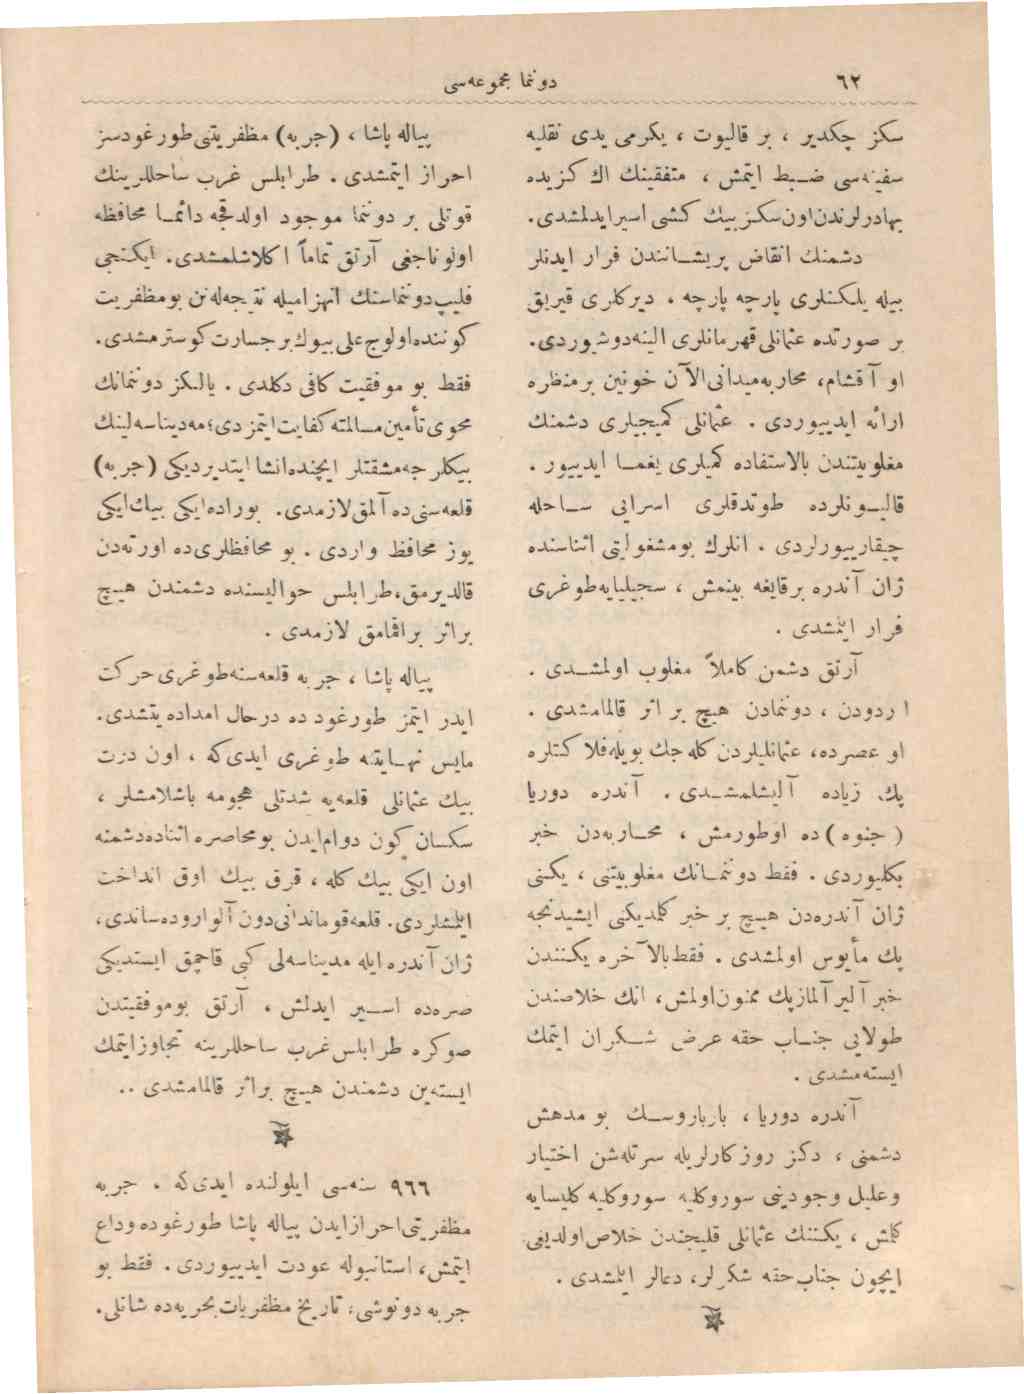 ٦٢
دوننما مجموعه‌سی
سكز چكدیر ، بر قالیوت ، یكرمی یدی نقلیه
سفینه‌سی ضـبط ایتمش ، متفقینك اك كزیده
بهادرلرندن اون سكز بیك كشی اسیر ایدلمشدی.
دشمنك انقاض پریشـانندن فرار ایدنلر
بیله یلكنلری پارچه پارچه ، دیركلری قیریق
بر صورتده عثمانلی قهرمانلری الینه دوشیوردی.
او آقشام، محاربه میدانی الآن خونین بر منظره
ارائه ایدییوردی . عثمانلی كمیجیلری دشمنك
مغلوبیتندن بالاستفاده كمیلری یغمـا ایدییور .
قالیـونلرده طوتدقلری اسرایی سـاحله
چیقارییورلردی . انلرك بو مشغولیتی اثناسنده
ژان آندره بر قایغه بینمش ، سجیلیایه طوغری
فرار ایتمشدی .
آرتق دشمن كاملاً مغلوب اولمشـدی .
اردودن ، دوننمادن هیچ بر اثر قالمامشدی .
او عصرده، عثمانلیلردن كله جك بویله فلاكتلره
پك زیاده آلیشلمشـدی . آندره دوریا
(جنوه) ده اوطورمش ، محـاربه‌دن خبر
بكلیوردی . فقط دوننمـانك مغلوبیتنی ، یكنی
ژان آندره‌دن هیـچ بر خبر كلمدیكنی ایشیدنجه
پك مأیوس اولمشدی . فقط بالاخره یكنندن
خبر آلیر آلماز پك ممنون اولمش، انك خلاصندن
طولایی جنـاب حقه عرض شـكران ایتمك
ایسته‌مشدی .
آندره دوریا ، بارباروسـك بو مدهش
دشمنی ، دكز روزكارلریله سرتله‌شن اختیار
وعلیل وجودینی سوروكلیه سوروكلیه كلیسایه
كلمش ، یكننك عثمانلی قلیجندن خلاص اولدیغی
ایچون جناب حقه شكرلر، دعالر ایتمشدی .
پیاله پاشا ، (جربه) مظفریتنی طورغودسز
احراز ایتمشدی . طرابلس غرب ساحللرینك
قوتلی بر دوننما موجود اولدقجه دائمـا محافظه
اولوناجغی آرتق تماماً اكلاشلمشدی. ایكنجی
فلیپ دوننماسنك انهزامیله نتیجه‌له‌نن بو مظفریت
كوننده اولوج علی بیوك بر جسارت كوسترمشدی.
فقط بو موفقیت كافی دكلدی . یالكز دوننمانك
محوی تأمین مسالمته كفایت ایتمزدی؛ مه‌دیناسه‌لینك
بیكلرجه مشقتلر ایچنده انشا ایتدیردیكی (جربه)
قلعه‌سنی ده آلمق لازمدی. بوراده ایكی بیك ایكی
یوز محافظ واردی . بو محافظلری ده اورته‌دن
قالدیرمق، طرابلس حوالیسنده دشمندن هیـچ
بر اثر براقمامق لازمدی .
پیاله پاشا ، جربه قلعه‌سنه طوغری حركت
ایدر ایتمز طورغود ده درحال امداده یتشدی.
مایس نهـایتنه طوغری ایدی كه ، اون درت
بیك عثمانلی قلعه‌یه شدتلی هجومه باشلامشلر ،
سكسان كون دوام ایدن بو محاصره اثناده دشمنه
اون ایكی بیك كله ، قرق بیك اوق انداخت
ایتمشلردی. قلعه قوماندانی دون آلوارو ده ساندی،
ژان آندره ایله مدیناسه‌لی كبی قاچمق ایستدیكی
صره‌ده اسـیر ایدلمش ، آرتق بو موفقیتدن
صوكره طرابلس غرب ساحللرینه تجاوز ایتمك
ایسته‌ین دشمندن هیـچ بر اثر قالمامشدی ..
٩٦٦ سنه‌سی ایلولنده ایدی كه ، جربه
مظفریتی احراز ایدن پیاله پاشا طورغوده وداع
ایتمش، استانبوله عودت ایدییوردی . فقط بو
جربه دونوشی، تاریخ مظفریات بحریه‌ده شانلی.